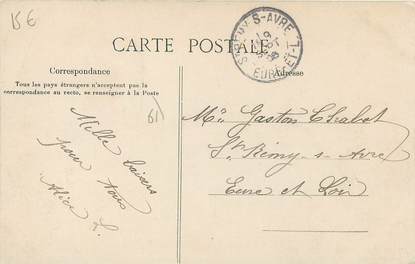 15€
CARTE POSTALE
Correspondance
Tous les pays étrangers n'acceptent pas la
correspondance au recto, se renseigner à la Poste
Adresse
61
Mille baisers
pour tous
Alice L.
Gaston Chabot
St Rémy-s-Avre
Eure et Loir